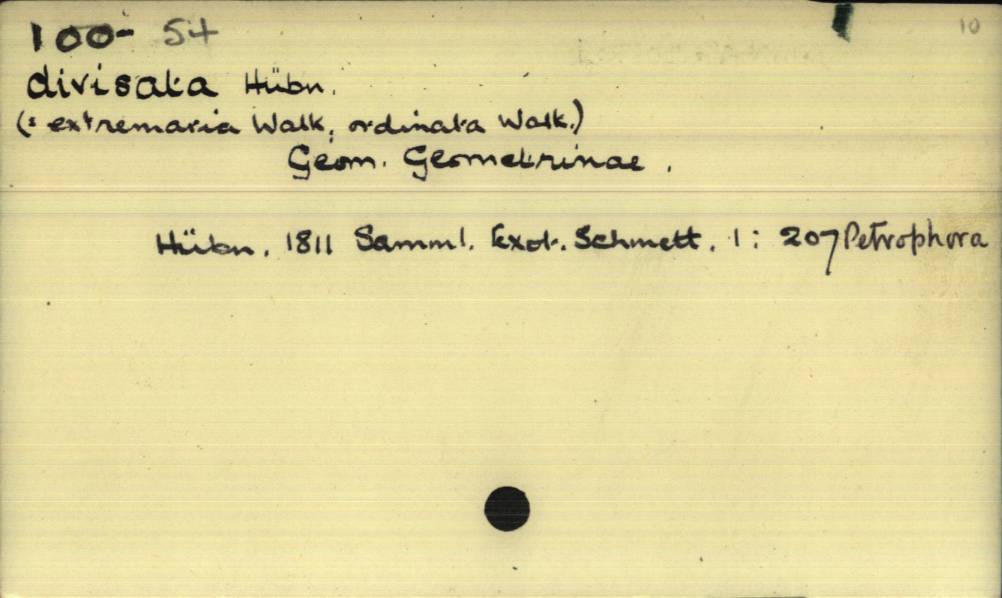 100- 54 10
divisata Hübn.
(= extremaria Walk; ordinata Walk.)
Geom. Geometrinae.
Hübn. 1811 Samml. Exot. Schmett. 1: 207 Petrophora